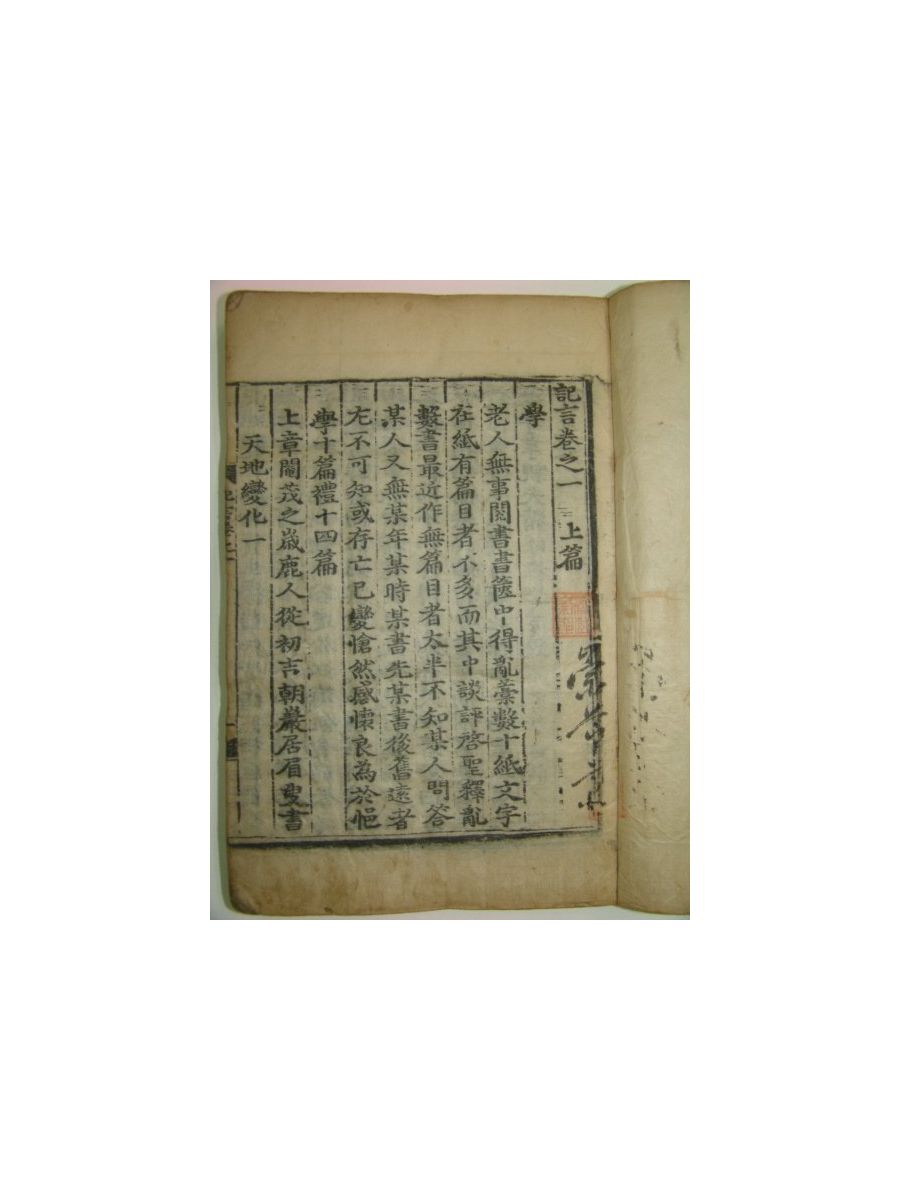 記言卷之一　上篇
學
老人無事閱書書篋中得亂藁數十紙文字
在紙有篇目者不多而其中談評啓聖釋亂
數書最近作無篇目者太半不知某人問答
某人又無某年某時某書先某書後舊遠者
尢不可知或存亡已變愴然感懷良為於悒
學十篇禮十四篇
上章閹茂之歲鹿人從初吉朝巖居眉叟書
天地變化一